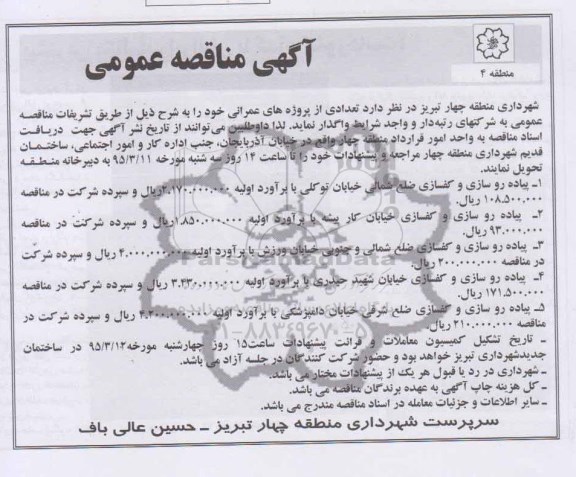 آگهی مناقصه عمومی
منطقه ۴
شهرداری منطقه چهار تبریز در نظر دارد تعدادی از پروژه های عمرانی خود را به شرح ذیل از طریق تشریفات مناقصه
عمومی به شرکتهای رتبه‌دار و واجد شرایط واگذار نماید. لذا داوطلبین می‌توانند از تاریخ نشر آگهی جهت دریافت
اسناد مناقصه به واحد امور قرارداد منطقه چهار واقع در خیابان آذربایجان، جنب اداره کار و امور اجتماعی، ساختمان
قدیم شهرداری منطقه چهار مراجعه و پیشنهادات خود را تا ساعت ۱۴ روز سه شنبه مورخه ۹۵/۳/۱۱ به دبیرخانه منطقه
تحویل نمایند.
۱ـ پیاده رو سازی و کفسازی ضلع شمالی خیابان توکلی با برآورد اولیه ۲.۱۷۰.۰۰۰.۰۰۰ریال و سپرده شرکت در مناقصه
۱۰۸.۵۰۰.۰۰۰ ریال.
۲ـ پیاده رو سازی و کفسازی خیابان کار پیشه با برآورد اولیه ۱.۸۵۰.۰۰۰.۰۰۰ریال و سپرده شرکت در مناقصه
۹۳.۰۰۰.۰۰۰ ریال.
۳ـ پیاده رو سازی و کفسازی ضلع شمالی و جنوبی خیابان ورزش با برآورد اولیه ۴.۰۰۰.۰۰۰.۰۰۰ ریال و سپرده شرکت
در مناقصه ۲۰۰.۰۰۰.۰۰۰ ریال.
۴ـ پیاده رو سازی و کفسازی خیابان شهید حیدری با برآورد اولیه ۳.۴۳۰.۰۰۰.۰۰۰ ریال و سپرده شرکت در مناقصه
۱۷۱.۵۰۰.۰۰۰ ریال.
۵ـ پیاده رو سازی و کفسازی ضلع شرقی خیابان دامپزشکی با برآورد اولیه ۴.۲۰۰.۰۰۰.۰۰۰ ریال و سپرده شرکت در
مناقصه ۲۱۰.۰۰۰.۰۰۰ ریال.
ـ تاریخ تشکیل کمیسیون معاملات و قرائت پیشنهادات ساعت۱۵ روز چهارشنبه مورخه۹۵/۳/۱۲ در ساختمان
جدیدشهرداری تبریز خواهد بود و حضور شرکت کنندگان در جلسه آزاد می باشد.
ـ شهرداری در رد یا قبول هر یک از پیشنهادات مختار می باشد.
ـ کل هزینه چاپ آگهی به عهده برندگان مناقصه می باشد.
ـ سایر اطلاعات و جزئیات معامله در اسناد مناقصه مندرج می باشد.
سرپرست شهرداری منطقه چهار تبریز ـ حسین عالی باف